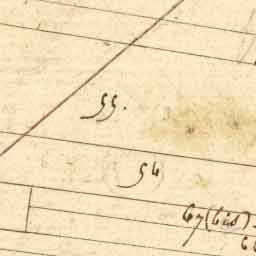 55.
56
67(bis).